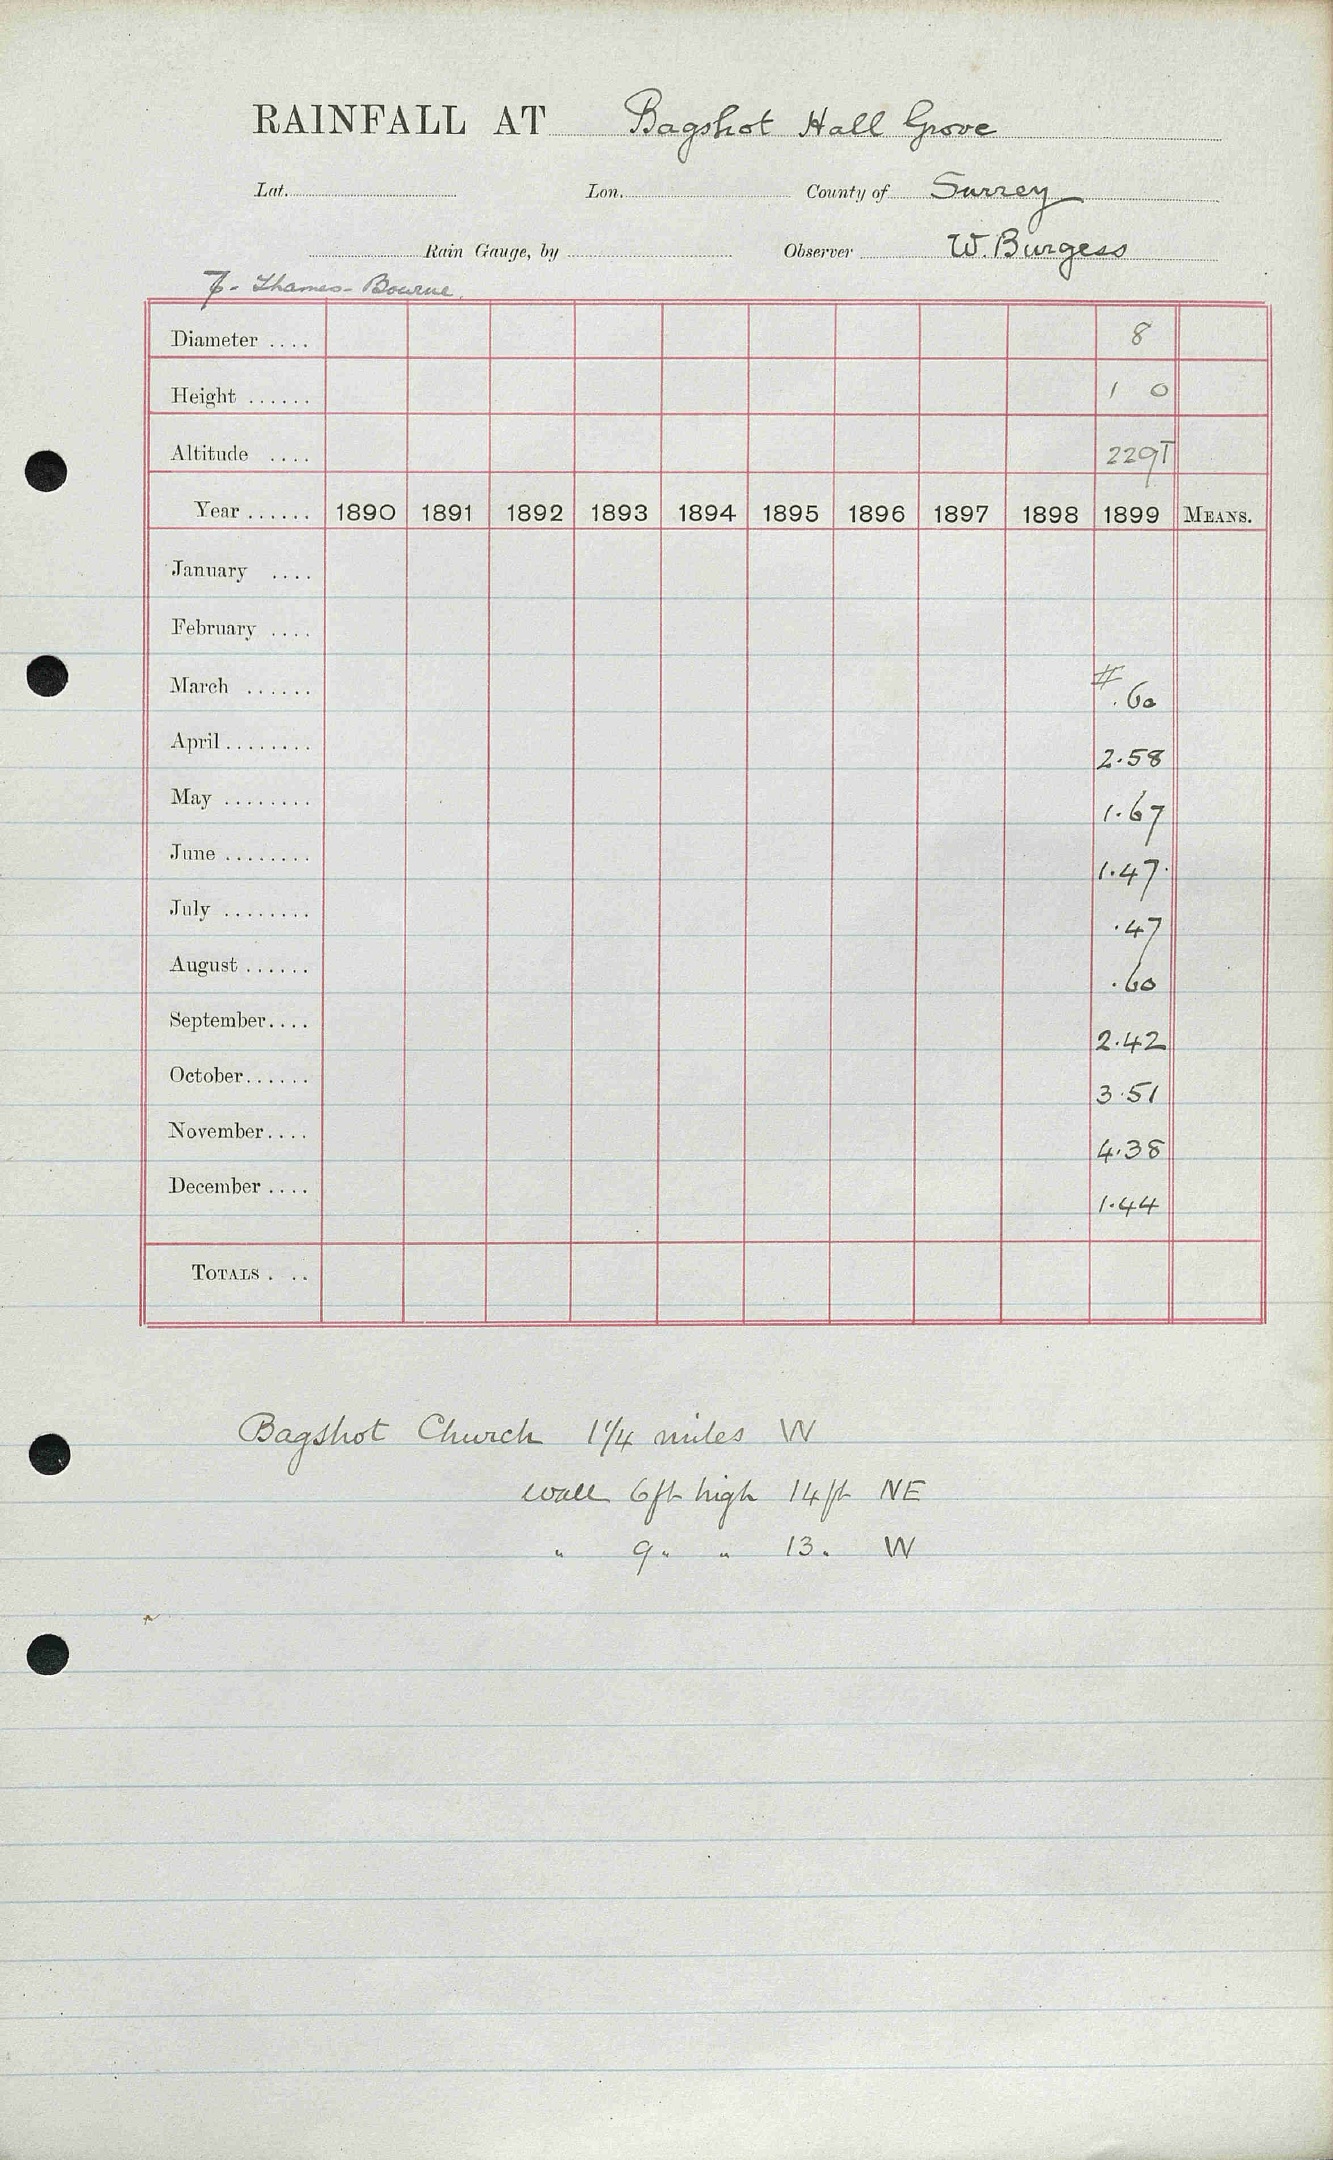 RAINFALL AT Bagshot Hall Grove
Lat. Lon. County of Surrey
Rain Gauge, by Observer W. Burgess
7- Thames- Bourne.
Diameter .... 8
Height ...... 1 0
Altitude .... 229T
Year ...... 1890 1891 1892 1893 1894 1895 1896 1897 1898 1899 MEANS.
January ....
February ....
March ...... # .60
April ........ 2.58
May ........ 1.67
June ........ 1.47
July ........ .47
August ...... .60
September.... 2.42
October...... 3.51
November.... 4.38
December .... 1.44
TOTALS . ..
Bagshot Church 1 1/4 miles W
wall 6ft high 14ft NE
" 9" " 13" W